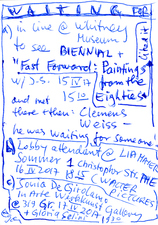 WAITING FOR
a) in line @ Whitney
Museum!
to see BIENNIAL &
"Fast Forward: Paintings
from the
w/J.S. 15 IV 17 Eighties"
and met 15 10
there then: Clemens
Weiss -
he was waiting for someone
b) Lobby attendant @ LIA MAHER
Sommer 1 Christopher Str. PHE
16 IV 2017 18 15 (WALTER
c) Sonia De Girolamo PICTURES
in Arte Gallery
@ 319 Gr. 17 USCA
+ Gloria 19 30